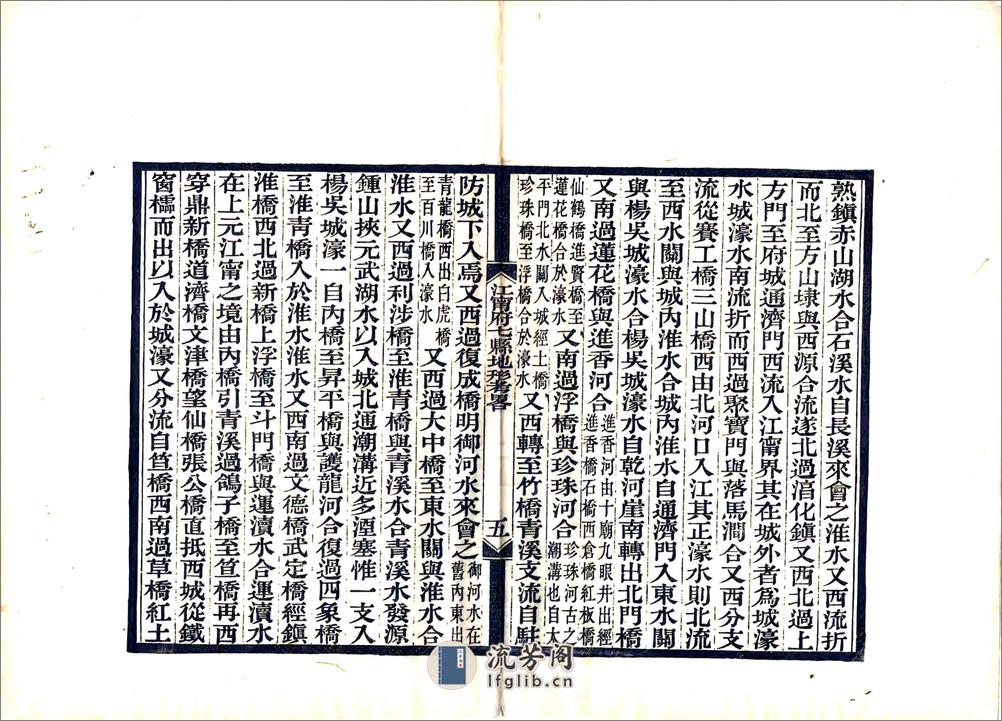 熟鎭赤山湖水合石溪水自長溪來會之淮水又西流折
而北至方山埭與西源合流遂北過淯化鎭又西北過上
方門至府城通濟門西流入江甯界其在城外者爲城濠
水城濠水南流折而西過聚寶門與落馬澗合又西分支
流從賽工橋三山橋西由北河口入江其正濠水則北流
至西水關與城內淮水合城內淮水自通濟門入東水關
與楊吳城濠水合楊吳城濠水自乾河崖南轉出北門橋
又南過蓮花橋與進香河合進香河由十廟九眼井出經
進香橋石橋西倉橋紅板橋
仙鶴橋進賢橋至
蓮花橋合於濠水又南過浮橋與珍珠河合珍珠河古之
潮溝也自太
平門北水關入城經土橋
珍珠橋至浮橋合於濠水又西轉至竹橋青溪支流自駐
江甯府七縣地形考畧
五
防城下入焉又西過復成橋明御河水來會之御河水在
舊內東出
青龍橋西出白虎橋
至百川橋入濠水又西過大中橋至東水關與淮水合
淮水又西過利涉橋至淮青橋與青溪水合青溪水發源
鍾山挾元武湖水以入城北通潮溝近多湮塞惟一支入
楊吳城濠一自內橋至昇平橋與護龍河合復過四象橋
至淮青橋入於淮水淮水又西南過文德橋武定橋經鎭
淮橋西北過新橋上浮橋至斗門橋與運瀆水合運瀆水
在上元江甯之境由內橋引青溪過鴿子橋至笪橋再西
穿鼎新橋道濟橋文津橋望仙橋張公橋直抵西城從鐵
窗櫺而出以入於城濠又分流自笪橋西南過草橋紅土
流芳阁
lfglib.cn